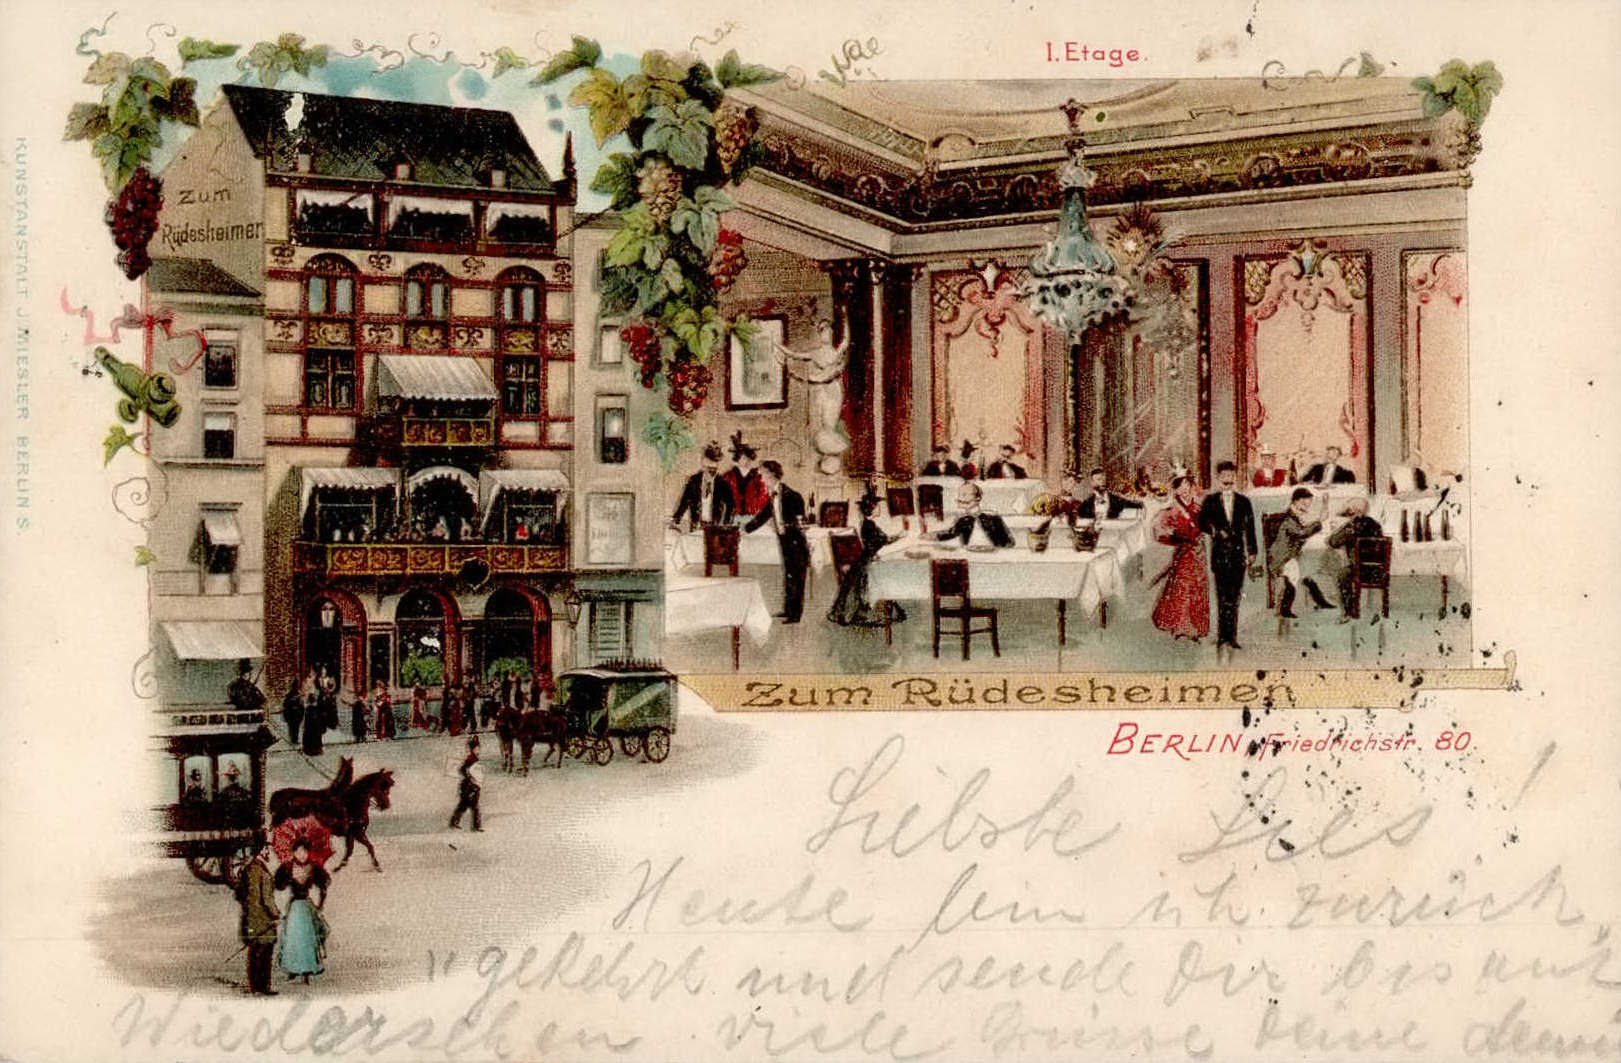 I. Etage.
Zum
Rüdesheimer
KUNSTANSTALT J. MIESLER BERLIN S.
Zum Rüdesheimer
BERLIN, Friedrichstr. 80.
Liebste Lies!
Heute bin ich zurück
gekehrt und sende Dir bis auf
Wiedersehen viele Grüsse Deine